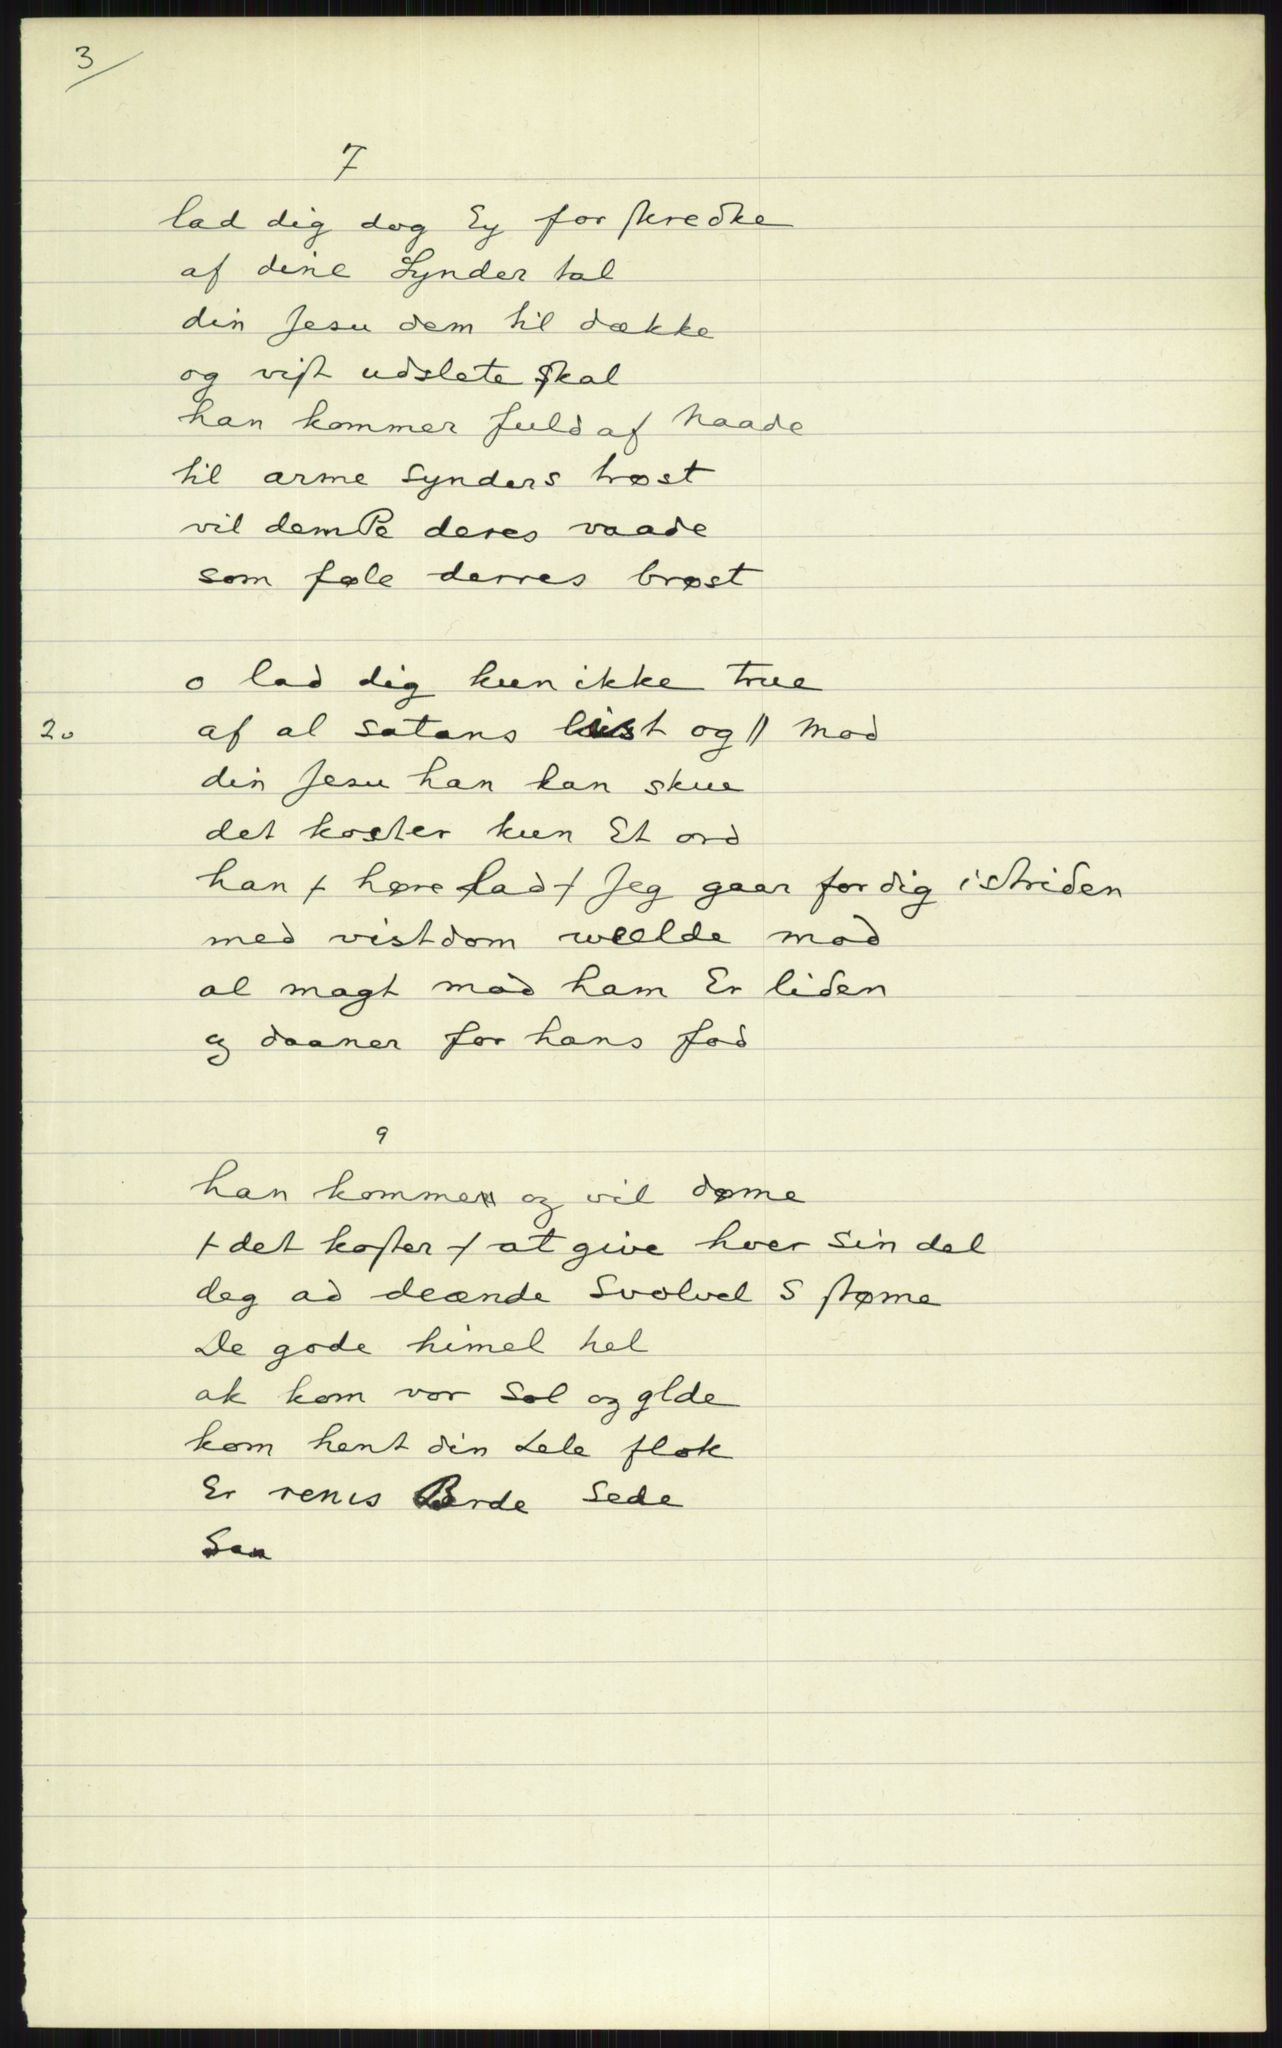 3
7
lad dig dog Ey for skredke
af dine Synder tal
din Jesu dem til dække
og vist udslete skal
han kommer fuld af Naade
til arme Synders trøst
vil dempe deres vaade
som føle derres brøst
o lad dig kun ikke true
20 af al satans list og // mod
din Jesu han kan skue
det koster kun Et ord
han + høre lad + Jeg gaar for dig i striden
med vistdom welde mod
al magt mod ham Er liden
og daaner for hans fod
9
han kommer og vil døme
+ det koster + at give hver sin del
deg ad deænde Svolvel S støme
De gode himel hel
ak kom vor Sol og glde
kom hent din Lele flok
Er renis Berde Sede
Saa